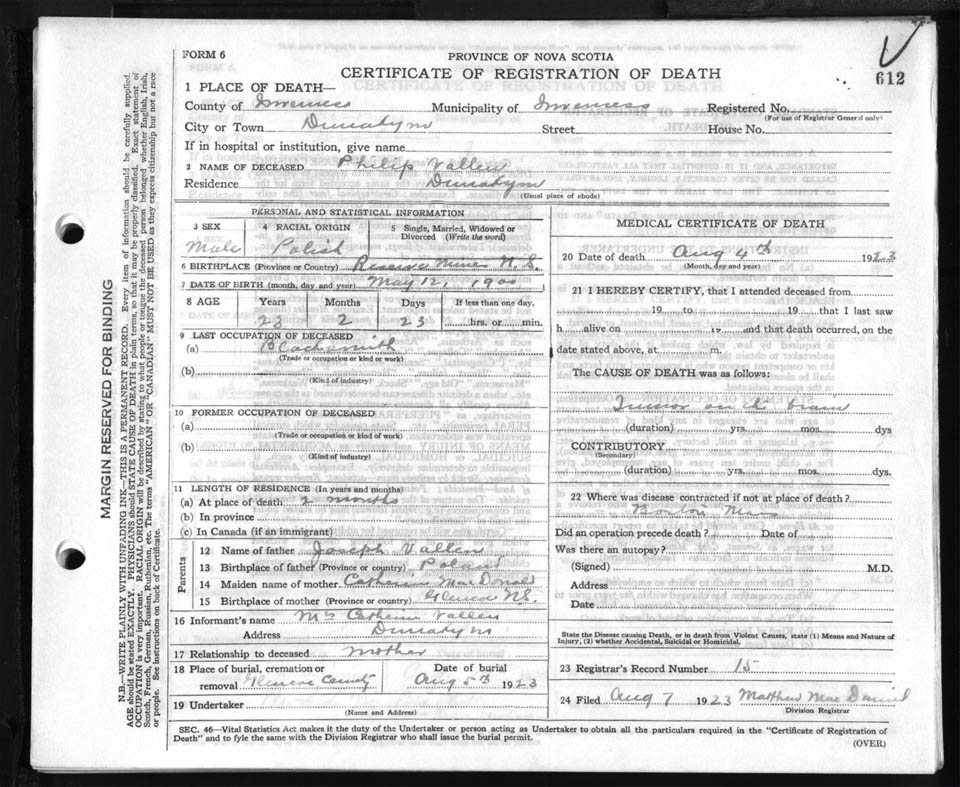 612
FORM 6
PROVINCE OF NOVA SCOTIA
CERTIFICATE OF REGISTRATION OF DEATH
1 PLACE OF DEATH—
County of Inverness Municipality of Inverness Registered No.
(For use of Registrar General only)
City or Town Street House No.
If in hospital or institution, give name
2 NAME OF DECEASED Philip Vallen
Residence
(Usual place of abode)
PERSONAL AND STATISTICAL INFORMATION
3 SEX
Male
4 RACIAL ORIGIN
Polish
5 Single, Married, Widowed or
Divorced (Write the word)
6 BIRTHPLACE (Province or Country) Reserve Mines N.S.
7 DATE OF BIRTH (month, day and year) May 12, 1900
8 AGE Years Months Days If less than one day,
23 2 23 hrs. or min.
9 LAST OCCUPATION OF DECEASED
(a) Blacksmith
(Trade or occupation or kind or work)
(b)
(Kind of industry)
10 FORMER OCCUPATION OF DECEASED
(a)
(Trade or occupation or kind of work)
(b)
(Kind of industry)
11 LENGTH OF RESIDENCE (In years and months)
(a) At place of death 2 months
(b) In province
(c) In Canada (if an immigrant)
Parents
12 Name of father Joseph Vallen
13 Birthplace of father (Province or country) Poland
14 Maiden name of mother Catherine MacDonald
15 Birthplace of mother (Province or country) Glencoe N.S.
16 Informant's name Mrs Catherine Vallen
Address
17 Relationship to deceased Mother
18 Place of burial, cremation or
removal Glencoe
Date of burial
Aug 5th 1923
19 Undertaker
(Name and Address)
MEDICAL CERTIFICATE OF DEATH
20 Date of death Aug 4th 1923
(Month, day and year)
21 I HEREBY CERTIFY, that I attended deceased from
19 to 19 that I last saw
h alive on 19 and that death occurred, on the
date stated above, at m.
The CAUSE OF DEATH was as follows:
Tumor on the brain
(duration) yrs. mos. dys
CONTRIBUTORY
(Secondary)
(duration) yrs. mos. dys.
22 Where was disease contracted if not at place of death?
Boston Mass
Did an operation precede death? Date of
Was there an autopsy?
(Signed) M.D.
Address
Date
State the Disease causing Death, or in death from Violent Causes, state (1) Means and Nature of
Injury, (2) whether Accidental, Suicidal or Homicidal.
23 Registrar's Record Number 15
24 Filed Aug 7 1923 Matthew Mac Daniel
Division Registrar
SEC. 46—Vital Statistics Act makes it the duty of the Undertaker or person acting as Undertaker to obtain all the particulars required in the "Certificate of Registration of
Death" and to fyle the same with the Division Registrar who shall issue the burial permit.
(OVER)
MARGIN RESERVED FOR BINDING
N.B.—WRITE PLAINLY WITH UNFADING INK—THIS IS A PERMANENT RECORD. Every item of information should be carefully supplied.
AGE should be stated EXACTLY. PHYSICIANS should STATE CAUSE OF DEATH in plain terms, so that it may be properly classified. Exact statement of
OCCUPATION is very important. RACIAL ORIGIN will be described by stating to what people or tongue the deceased person belonged whether English, Irish,
Scotch, French, German, Russian, Ruthenian, etc. The terms "AMERICAN" OR "CANADIAN" MUST NOT BE USED as they express citizenship but not a race
or people. See instructions on back of Certificate.